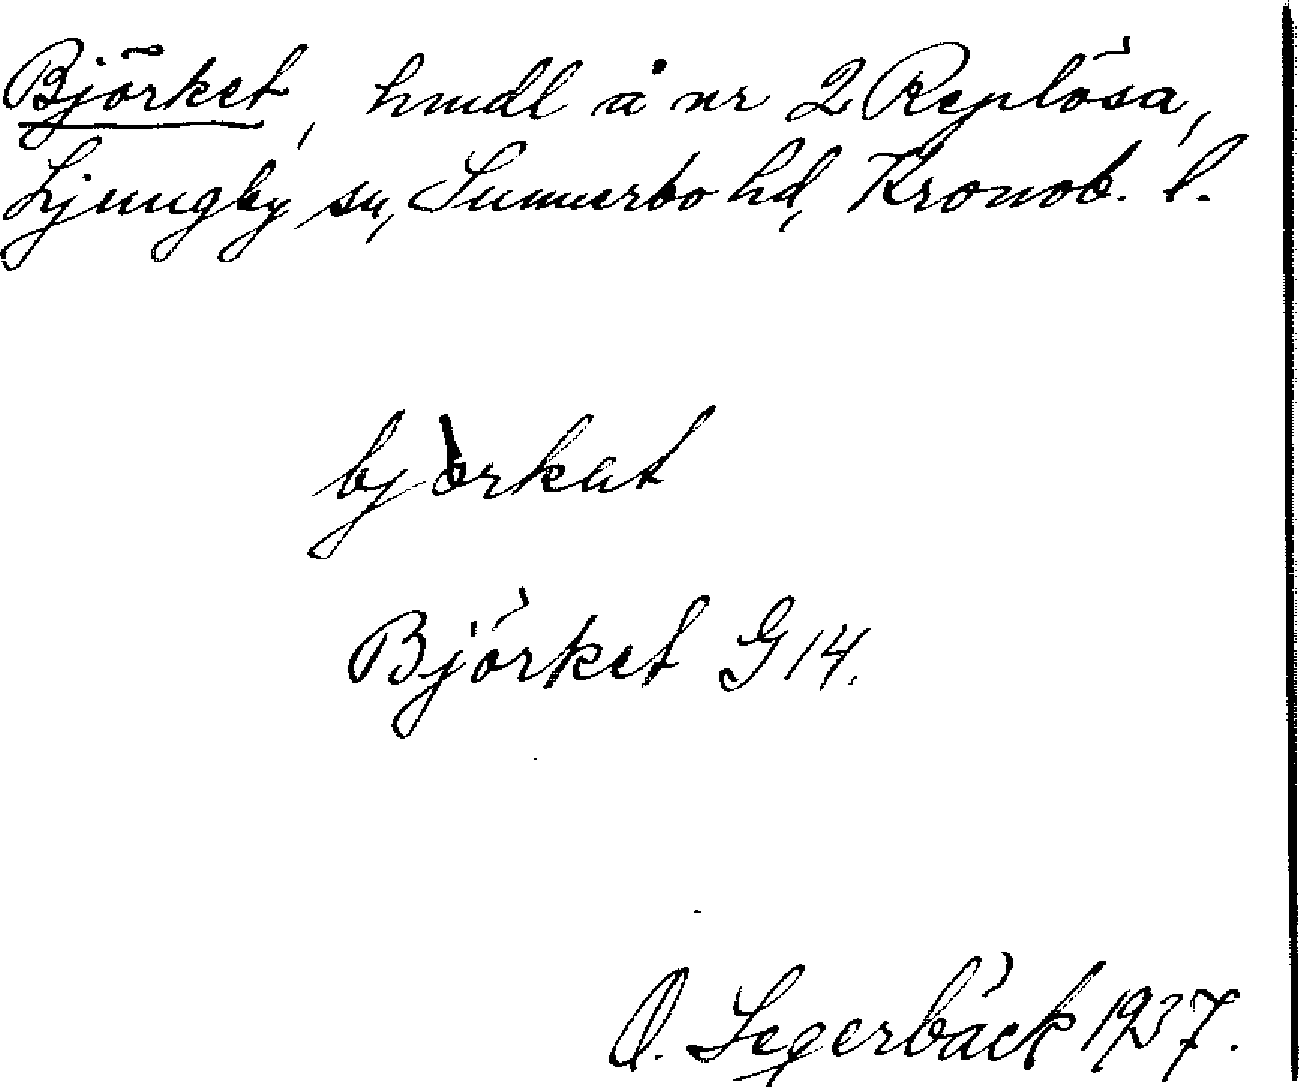 Björket, hmdl å nr 2 Replösa,
Ljungby sn, Sunnerbo hd, Kronob. l.
bjòrkat
Björket G 14.
O. Segerbäck 1937.